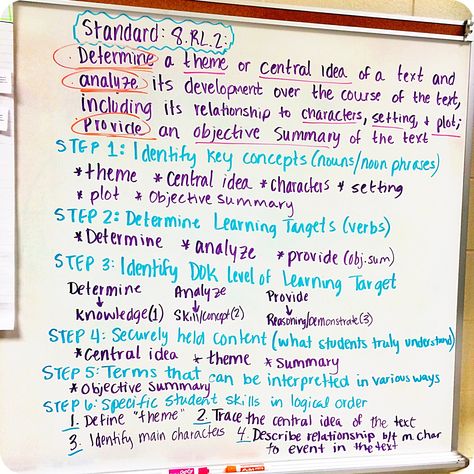 Standard: 8.RL.2:
Determine a theme or central idea of a text and
analyze its development over the course of the text,
including its relationship to characters, setting, + plot;
Provide an objective summary of the text
STEP 1: Identify key concepts (nouns/noun phrases)
*theme *central idea *characters *setting
*plot *Objective summary
STEP 2: Determine Learning Targets (verbs)
*Determine *analyze *provide (obj.sum)
STEP 3: Identify DOK level of Learning Target
Determine Analyze Provide
Knowledge(1) Skill/concept(2) Reasoning/Demonstrate(3)
STEP 4: Securely held content (what students truly understand)
*central idea *theme *summary
STEP 5: Terms that can be interpretted in various ways
*Objective Summary
STEP 6: Specific student skills in logical order
1. Define "theme" 2. Trace the central idea of the text
3. Identify main characters 4. Describe relationship b/t m.char
to event in the text